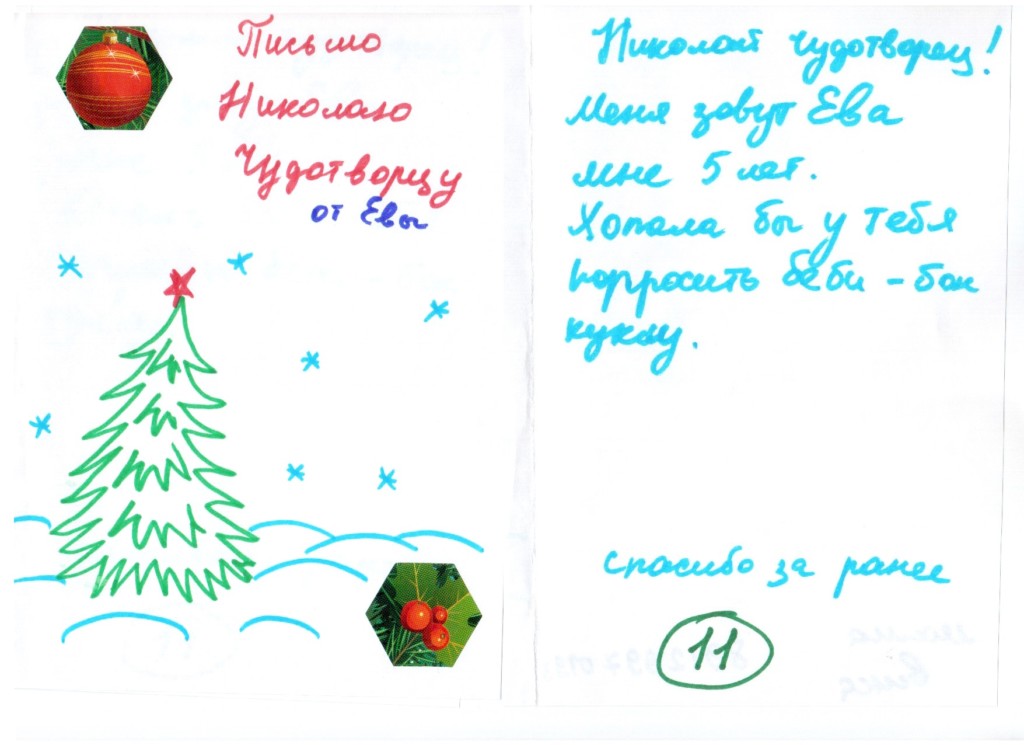 Письмо
Николаю
Чудотворцу
от Евы
Николай чудотворец!
Меня зовут Ева
мне 5 лет.
Хопала бы у тебя
попросить беби - бон
куклу.
спасибо за ранее
11